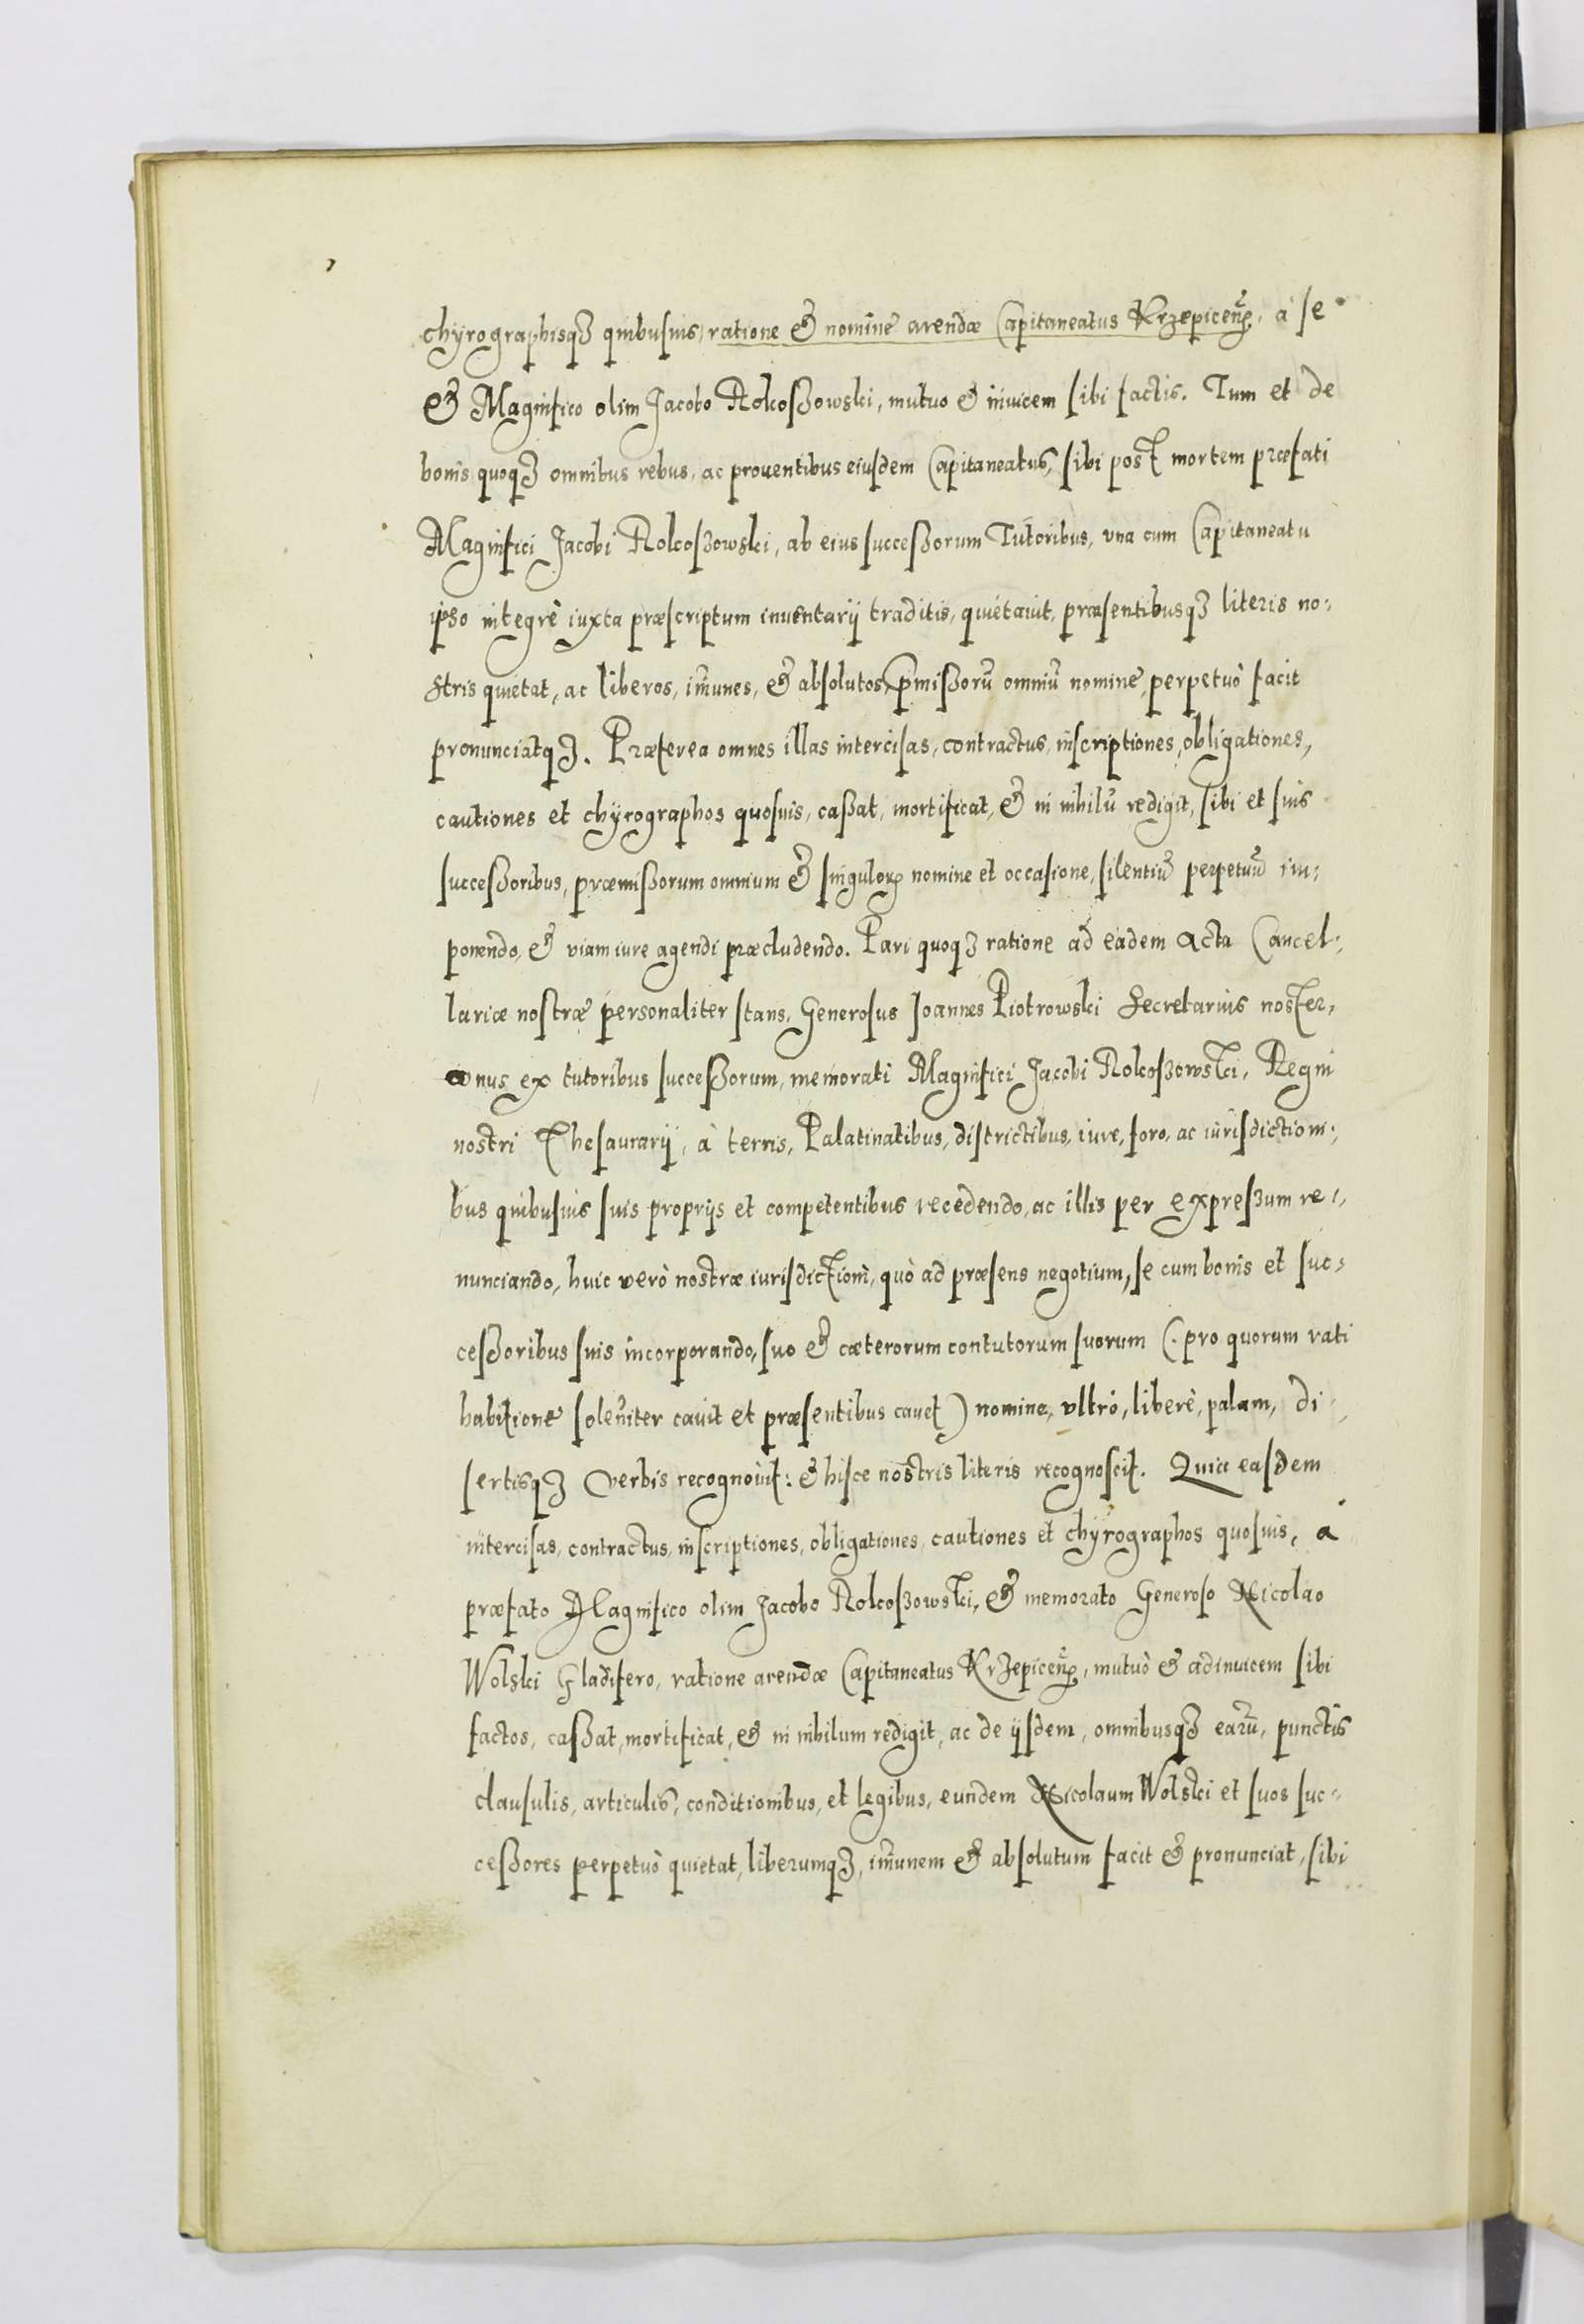 chyrographisq3 quibusuis, ratione & nomine arendæ Capitaneatus Krzepicen̄, à se
& Magnifico olim Jacobo Rokoßowski, mutuo & inuicem sibi factis. Tum et de
bonis quoq3 omnibus rebus, ac prouentibus eiusdem Capitaneatus, sibi post mortem præfati
Magnifici Jacobi Rokoßowski, ab eius succeßorum Tutoribus, vna cum Capitaneatu
ipso integrè iuxta præscriptum inuentarij traditis, quietauit, præsentibusq3 literis no:
stris quietat, ac liberos, im̄unes, & absolutos, p̄mißorū omniū nomine, perpetuò facit
pronunciatq3. Præterea omnes illas intercisas, contractus, inscriptiones, obligationes,
cautiones et chyrographos quosuis, caßat, mortificat, & in nihilū redigit, sibi et suis
succeßoribus, præmißorum omnium & singuloꝝ nomine et occasione, silentiū perpetuū im:
ponendo, & viam iure agendi præcludendo. Pari quoq3 ratione ad eadem acta Cancel:
lariæ nostræ personaliter stans, Generosus Joannes Piotrowski Secretarius noster,
vnus ex tutoribus succeßorum, memorati Magnifici Jacobi Rokoßowski, Regni
nostri Thesaurarij, à terris, Palatinatibus, districtibus, iure, foro, ac iurisdictioni:
bus quibusuis suis proprijs et competentibus recedendo, ac illis per expreßum re:
nunciando, huic verò nostræ iurisdictioni, quò ad præsens negotium, se cum bonis et suc:
ceßoribus suis incorporando, suo & cæterorum contutorum suorum (: pro quorum rati
habitione solen̄iter cauit et præsentibus cauet) nomine, vltrò, liberè, palam, di:
sertisq3 verbis recognouit: & hisce nostris literis recognoscit. Quia easdem
intercisas, contractus, inscriptiones, obligationes, cautiones et chyrographos quosuis, à
præfato Magnifico olim Jacobo Rokoßowski, & memorato Generoso Nicolao
Wolski Gladifero, ratione arendæ Capitaneatus Krzepicen̄, mutuò & adinuicem sibi
factos, caßat, mortificat, & in nihilum redigit, ac de ijsdem, omnibusq3 earū, punctis
clausulis, articulis, conditionibus, et legibus, eundem Nicolaum Wolski et suos suc:
ceßores perpetuò quietat, liberumq3, im̄unem & absolutum facit & pronunciat, sibi